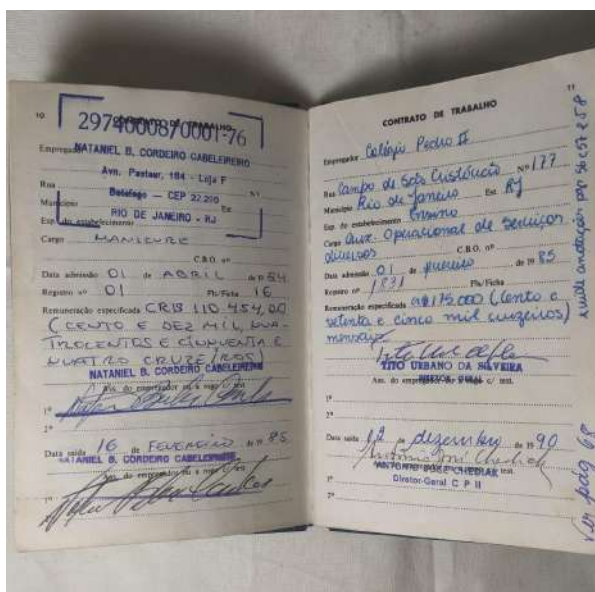 10
CONTRATO DE TRABALHO
29740008/0001-76
Empregador
NATANIEL B. CORDEIRO CABELEIREIRO
Avn. Pasteur, 184 - Loja F
Rua Nº
Botafogo — CEP 22.290
Município Est.
RIO DE JANEIRO - RJ
Esp. do estabelecimento
Cargo MANICURE
C.B.O. nº
Data admissão 01 de ABRIL de 19 84
Registro nº 01 Fls/Ficha 16
Remuneração especificada CR$ 110.454,00
(CENTO E DEZ MIL, QUA-
TROCENTOS E CINQUENTA E
QUATRO CRUZEIROS)
NATANIEL B. CORDEIRO CABELEIREIRO
Ass. do empregador ou a rogo c/ test.
1º
2º
Data saída 16 de FEVEREIRO de 19 85
NATANIEL B. CORDEIRO CABELEIREIRO
Ass. do empregador ou a rogo c/ test.
1º
2º
11
CONTRATO DE TRABALHO
Empregador Colégio Pedro II
Rua Campo de São Cristóvão Nº 177
Município Rio de Janeiro Est. RJ
Esp. do estabelecimento Ensino
Cargo Aux. Operacional de Serviços
diversos C.B.O. nº
Data admissão 01 de de 19 85
Registro nº 1831 Fls/Ficha
Remuneração especificada CR$ 175.000 (Cento e
setenta e cinco mil cruzeiros)
mensais
TITO URBANO DA SILVEIRA
DIRETOR GERAL
Ass. do empregador ou a rogo c/ test.
1º
2º
Data saída 12 de dezembro de 19 90
ANTONIO JOSÉ CHEDIAK
Diretor-Geral C P II
1º
2º
vide anotação pág 56 e 57 e 58
Ver pág 68